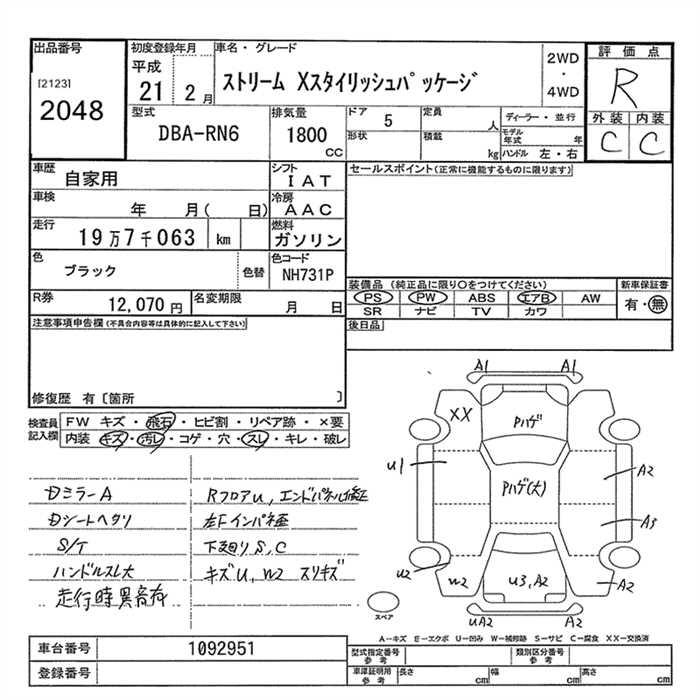 出品番号
[2123]
2048
初度登録年月
平成
21 2月
車名・グレード
ストリーム Xスタイリッシュパッケージ
2WD
・
4WD
評価点
R
外装 内装
C C
型式
DBA-RN6
排気量
1800
CC
ドア
5
形状
定員
人
積載
kg
ディーラー・並行
モデル年式 年
ハンドル 左・右
車歴
自家用
シフト
IAT
セールスポイント(正常に機能するものに限ります)
車検
年 月( 日)
冷房
AAC
走行
19万7千063 km
燃料
ガソリン
色
ブラック
色替
色コード
NH731P
装備品 (純正品に限り○をつけてください)
PS PW ABS エアB AW
SR ナビ TV カワ
新車保証書
有・無
R券
12,070円
名変期限
月 日
後日品
注意事項申告欄 (不具合内容等は具体的に記入して下さい)
修復歴 有〔箇所 〕
検査員記入欄
FW キズ・飛石・ヒビ割・リペア跡・×要
内装 キズ・汚レ・コゲ・穴・スレ・キレ・破レ
DミラーA
Dシートヘタリ
S/T
ハンドルスレ大
走行時異音有
RフロアU、エンドパネル修正
左Fインパネ歪
下廻りS、C
キズU、W2 スリキズ
A1 A1
XX
Pハゲ
U1
Pハゲ(大)
A2
A3
U2
W2
U3,A2
A2
UA2
A2
スペア
A―キズ E―エクボ U―凹み W―補修跡 S―サビ C―腐食 XX―交換済
車台番号
1092951
登録番号
型式指定番号
参考
類別区分番号
参考
車庫証明用
参考
長さ cm
幅 cm
高さ cm